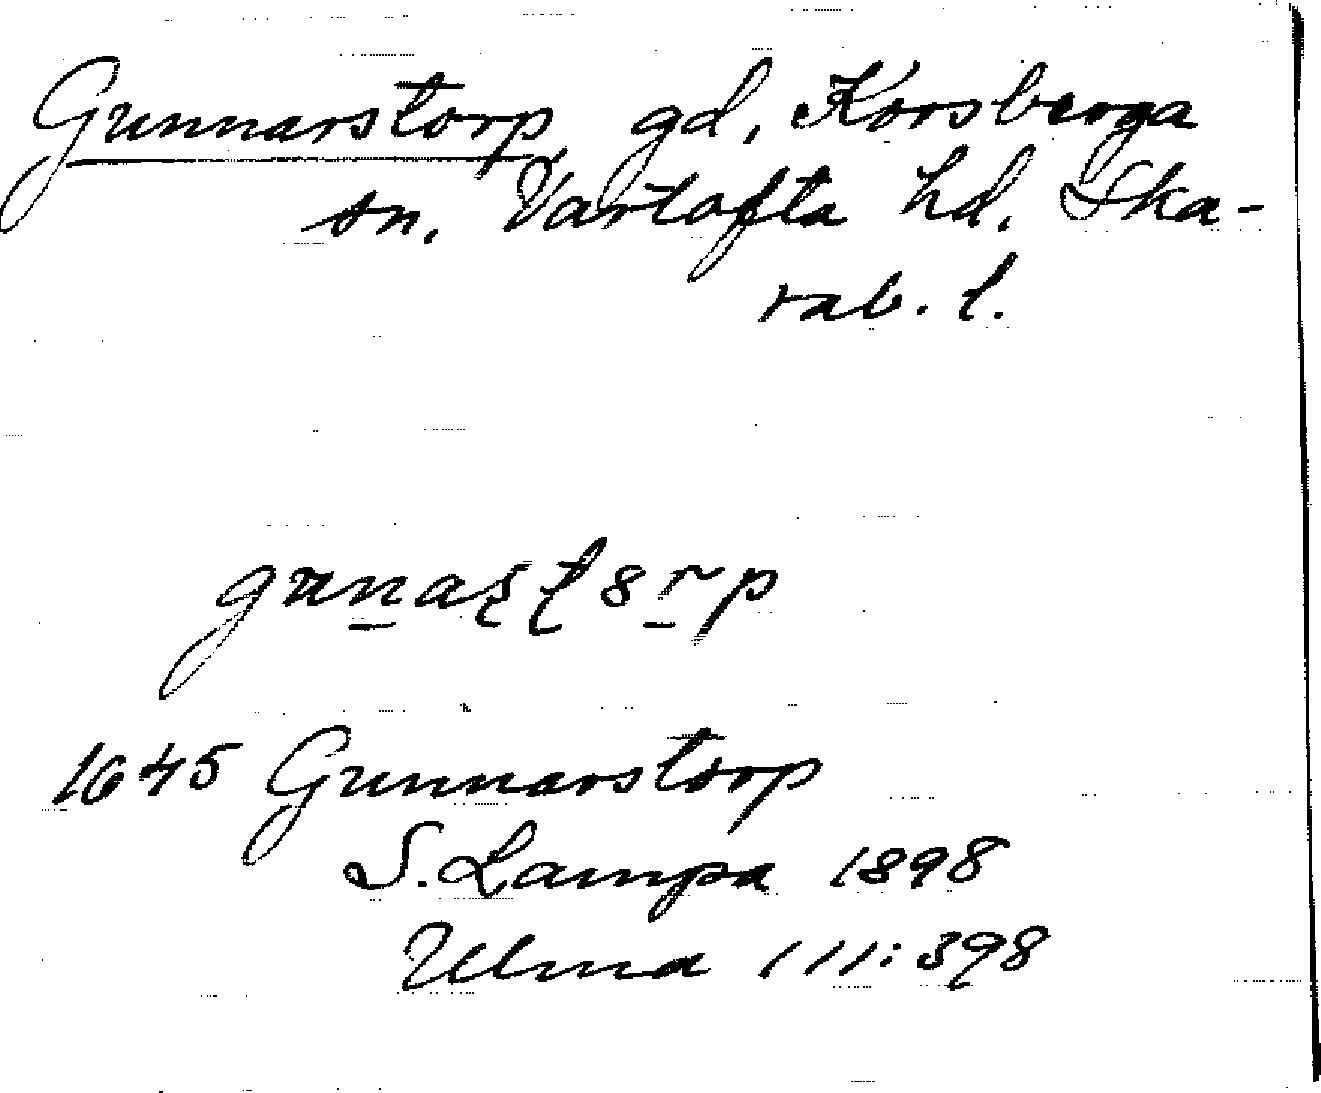 Gunnarstorp gd, Korsberga
sn. Vartofta hd. Ska-
rab. l.
1645 Gunnarstorp
S. Lampa 1898
Ulma 111:398